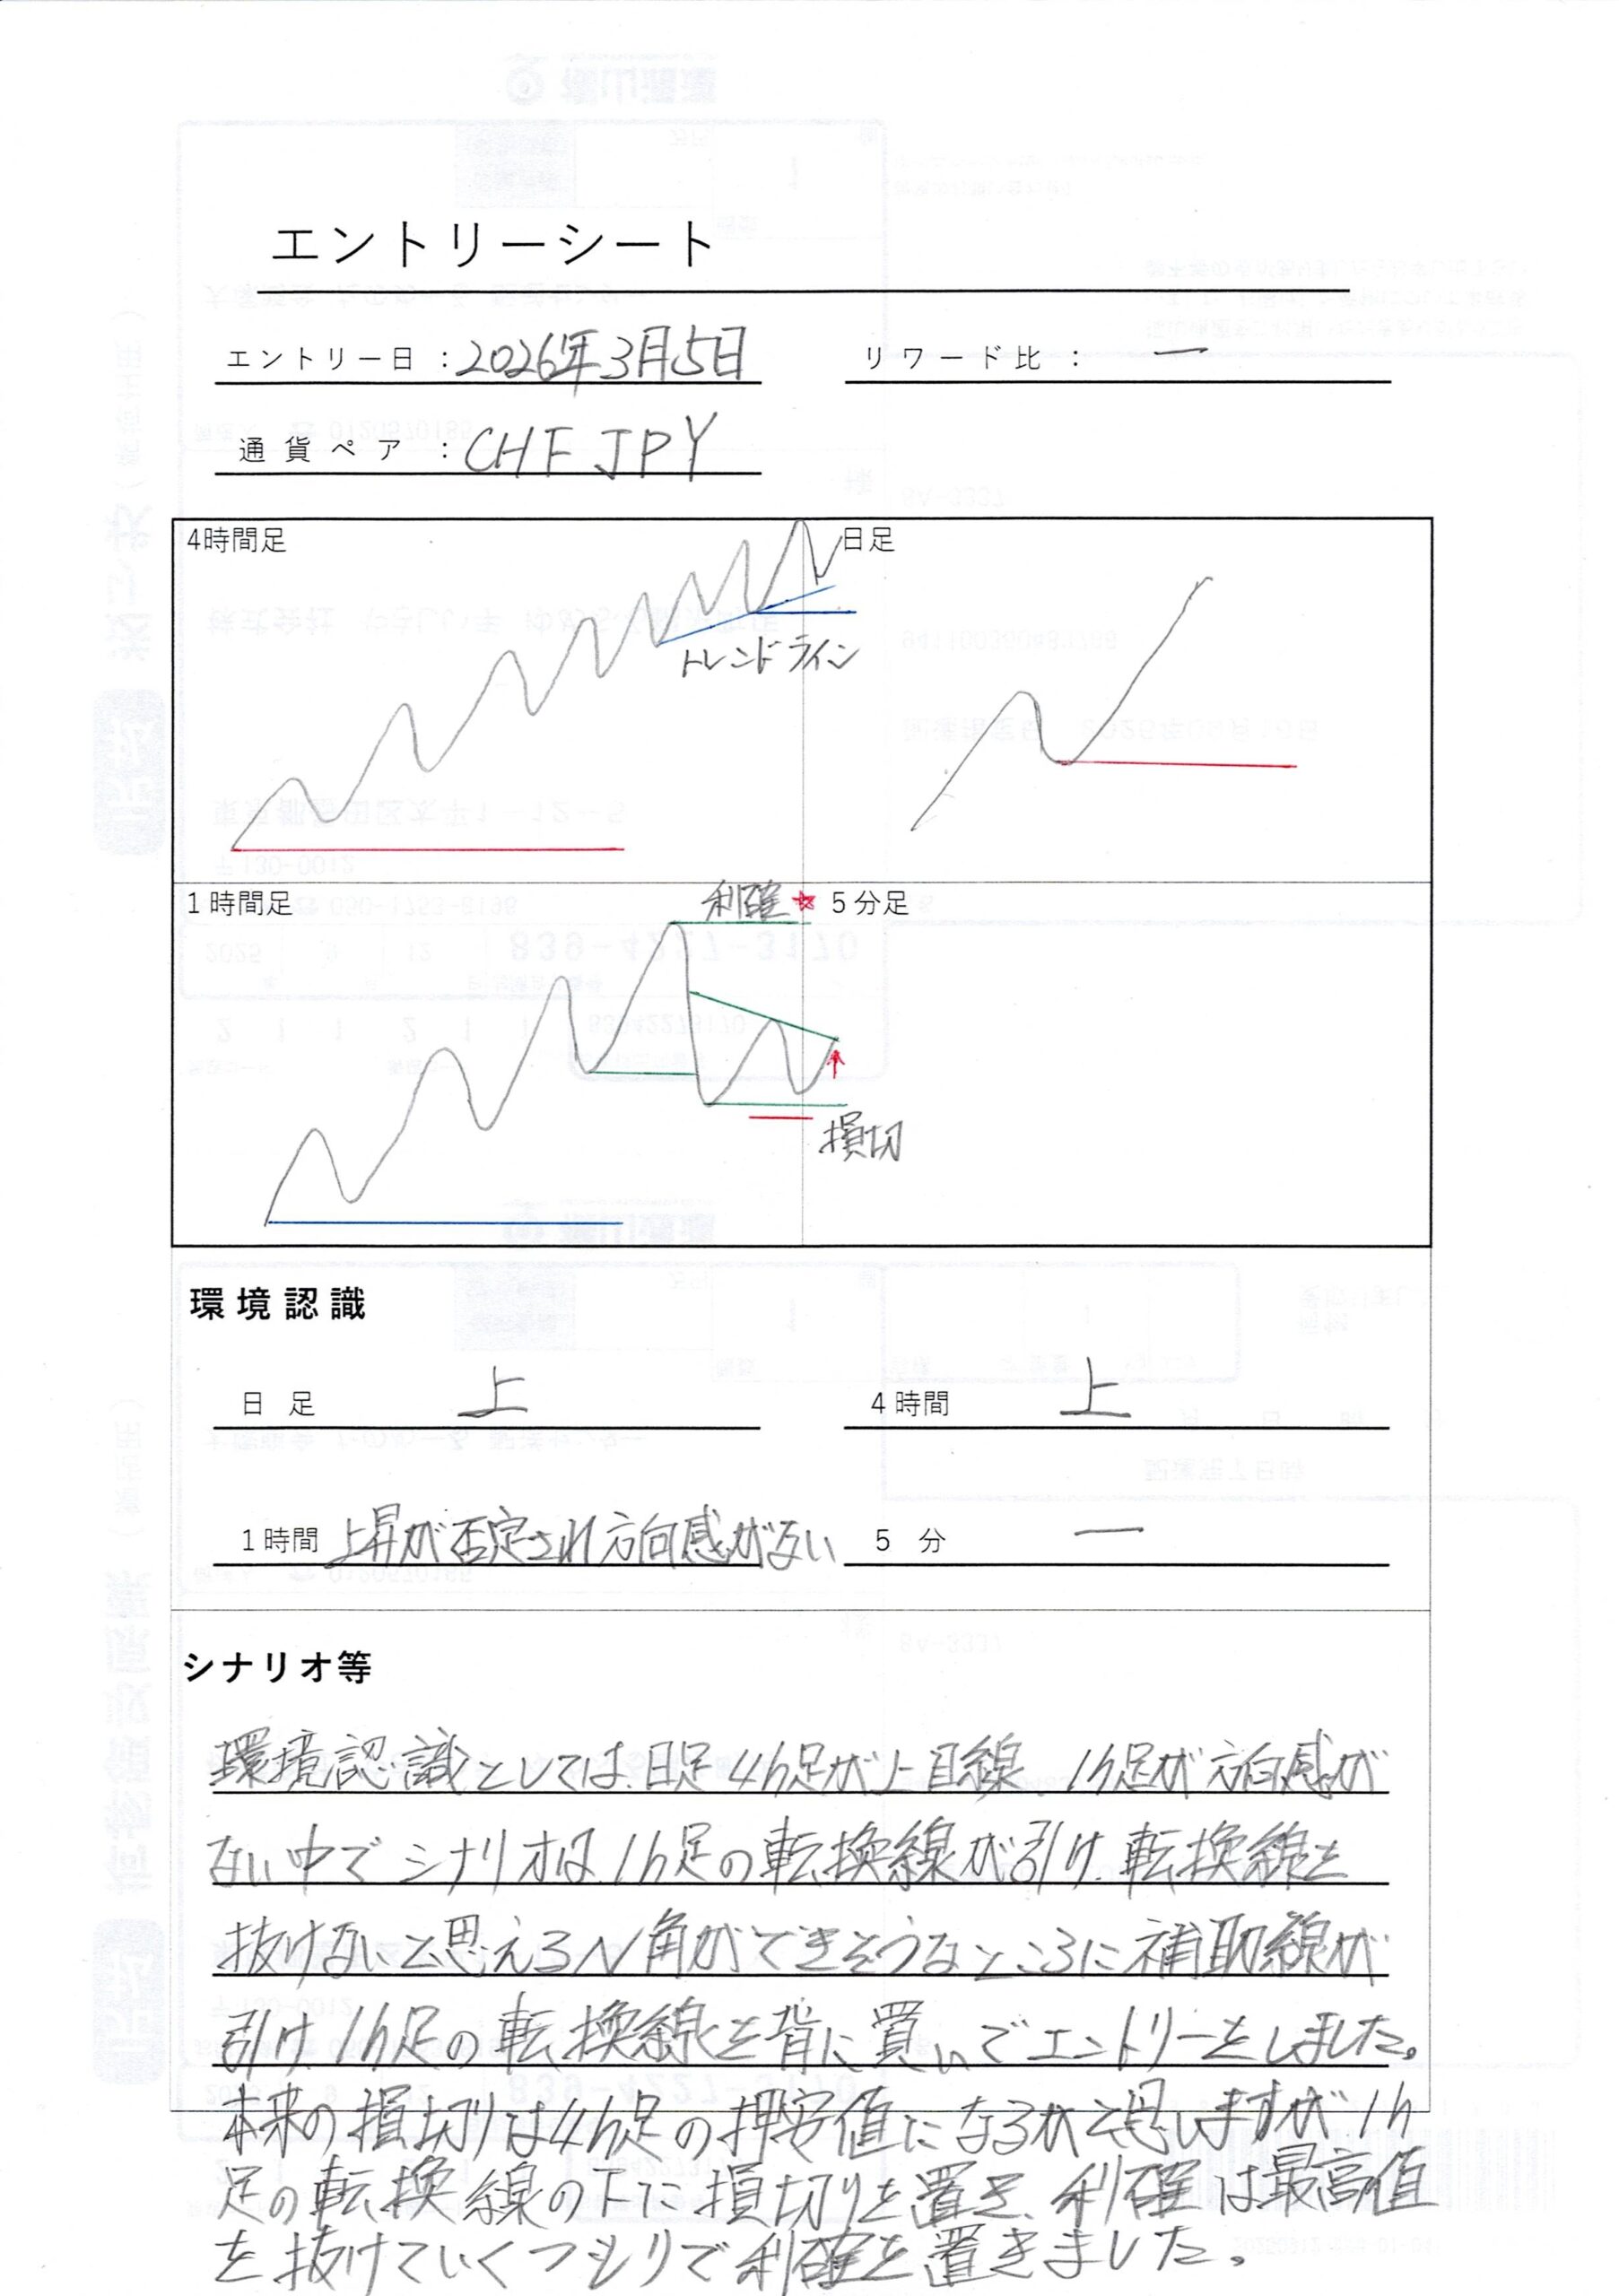 エントリーシート
エントリー日：2026年3月5日
リワード比：ー
通貨ペア：CHF JPY
4時間足
日足
トレンドライン
1時間足
利確
5分足
損切
環境認識
日足 上
4時間 上
1時間 上昇が否定され方向感がない
5分 ー
シナリオ等
環境認識としては、日足4h足が上目線、1h足が方向感が
ない中でシナリオは、1h足の転換線が引け、転換線を
抜けないと思えるN角ができそうなところに補助線が
引け、1h足の転換線を背に買いでエントリーをしました。
本来の損切りは4h足の押安値になるかと思いますが1h
足の転換線の下に損切りを置き、利確は最高値
を抜けていくつもりで利確を置きました。